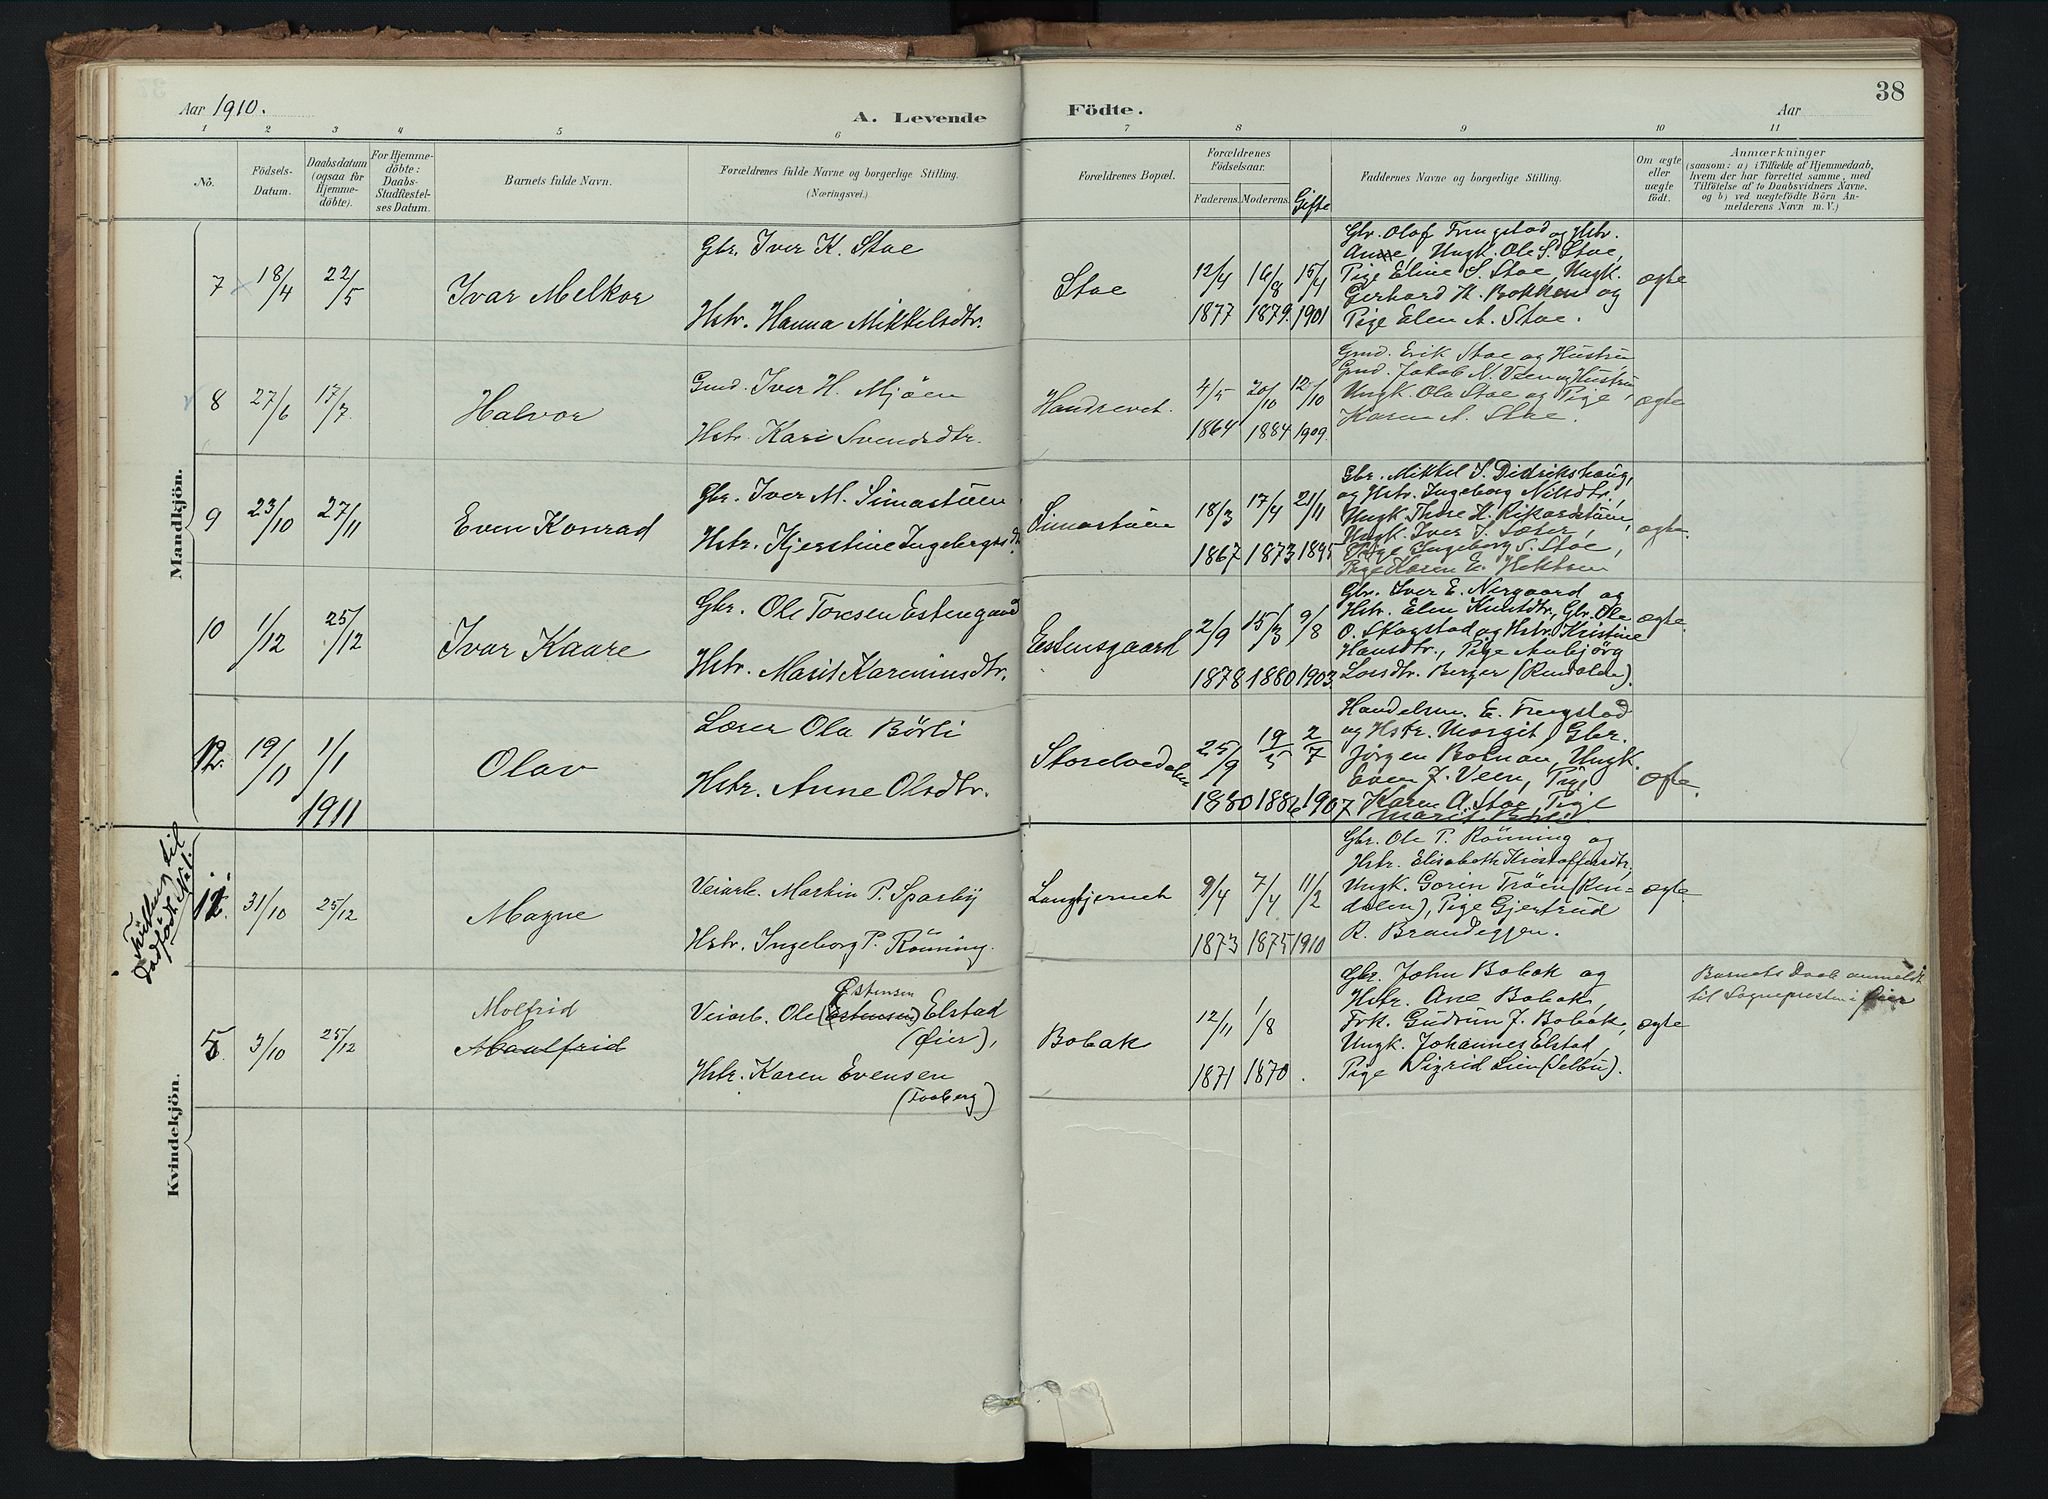 38
Aar 1910.
A. Levende
Födte.
Aar
1 2 3 4 5 6 7 8 9 10 11
No.
Födsels-Datum.
Daabsdatum (ogsaa for Hjemme-döbte).
For Hjemme-döbte: Daabs-Stadfæstel-ses Datum.
Barnets fulde Navn.
Forældrenes fulde Navne og borgerlige Stilling.
(Næringsvei.)
Forældrenes Bopæl.
Forældrenes Födselsaar.
Faderens. Moderens.
Gifte
Faddernes Navne og borgerlige Stilling.
Om ægte eller uægte födt.
Anmærkninger
(saasom: a) i Tilfælde af Hjemmedaab,
hvem der har forrettet samme, med
Tilföielse af to Daabsvidners Navne.
og b) ved uægtefödte Börn An-
melderens Navn m. V.)
Mandkjön.
7
18/4
22/5
Ivar Melkor
Gbr. Iver K. Stoe
Hstr. Hanna Mikkelsdtr.
Stoe
12/4 1877
16/8 1879
15/4 1901
Gbr. Olaf Frengstad og Hstr.
Anne, Ungk. Ole S. Stoe,
Pige Eline S. Stoe, Ungk.
Gerhard H. Bakken og
Pige Elen A. Stoe.
ægte
8
27/6
17/7
Halvor
Gmd. Iver H. Mjöen
Hstr. Kari Svendsdtr.
4/5 1864
20/10 1884
12/10 1909.
Gmd. Erik Stoe og Hustru
Gmd. Jakob N. Veen og Hustru,
Ungk. Ola Stoe og Pige
Karen A. Stoe.
ægte
9
23/10
27/11
Even Konrad
Gbr. Iver M. Simastüen
Hstr. Kjerstine Ingebrigtsdt.
Simastüen
18/3 1867
17/4 1873
21/11 1895
Gbr. Mikkel I. Didrikshaug,
og Hstr. Ingeborg Nilsdtr.,
Ungk. Thore H. Rikardstüen,
Ungk. Iver J. Sæter,
Pige Ingeborg S. Stoe,
Pige Karen E. Hektoen
ægte.
10
1/12
25/12
Ivar Kaare
Gbr. Ole Toresen Estensgaard
Hstr. Marit Kareniusdtr.
Estensgaard
2/9 1878
15/3 1880
9/8 1903.
Gbr. Iver E. Nergaard og
Hstr. Elen Knutdtr., Gbr. Ole
O. Skogstad og Hstr. Kristine
Hansdtr., Pige Anbjørg
Larsdtr. Berger (Rendalen).
ægte.
12.
19/11
1/1 1911
Olav
Lærer Ola Börli
Hstr. Anne Olsdtr.
Storelvedalen
25/9 1880
19/5 1886
2/7 1907
Handelsm. E. Frengstad
og Hstr. Margit, Gbr.
Jørgen Botnan, Ungk.
Even J. Veen, Pige
Karen A. Stoe, Pige
Marit Börli.
ægte.
Tvilling til
dødfödt No 1.
12.
31/10
25/12
Magne
Veiarb. Martin P. Sparby
Hstr. Ingeborg P. Rönning.
Langtjernet
9/4 1873
7/4 1875
11/2 1910
Gbr. Ole P. Rönning og
Hstr. Elisabeth Kristoffersdtr,
Ungk. Gorin Tröen (Ren-
dalen), Pige Gjertrud
R. Brandeggen.
ægte
Kvindekjön.
5.
3/10
25/12
Molfrid
Maalfrid
Østensen
Veiarb. Ole (Estensen) Elstad
(Øier),
Hstr. Karen Evensen
(Faaberg)
Bobak
12/11 1871
1/8 1870.
Gbr. John Bobak og
Hstr. Ane Bobak,
Frk. Gudrun J. Bobak,
Ungk. Johannes Elstad,
Pige Sigrid Lien (Selbu).
ægte
Barnets Daab anmeldt
til Sognepresten i Øier